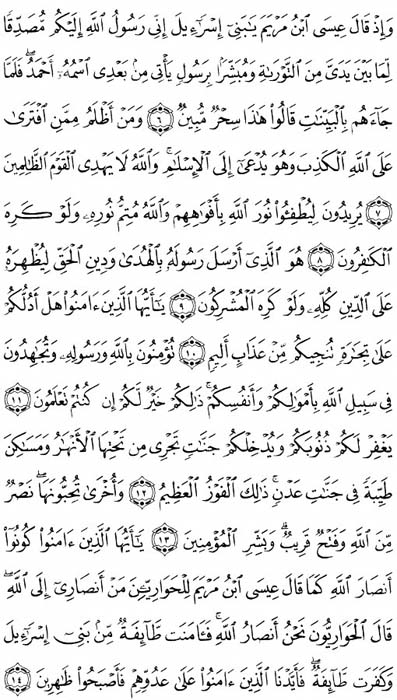 وَإِذۡ قَالَ عِيسَى ٱبۡنُ مَرۡيَمَ يَٰبَنِيٓ إِسۡرَٰٓءِيلَ إِنِّي رَسُولُ ٱللَّهِ إِلَيۡكُم مُّصَدِّقٗا
لِّمَا بَيۡنَ يَدَيَّ مِنَ ٱلتَّوۡرَىٰةِ وَمُبَشِّرَۢا بِرَسُولٖ يَأۡتِي مِنۢ بَعۡدِي ٱسۡمُهُۥٓ أَحۡمَدُۖ فَلَمَّا
جَآءَهُم بِٱلۡبَيِّنَٰتِ قَالُواْ هَٰذَا سِحۡرٞ مُّبِينٞ ٦ وَمَنۡ أَظۡلَمُ مِمَّنِ ٱفۡتَرَىٰ
عَلَى ٱللَّهِ ٱلۡكَذِبَ وَهُوَ يُدۡعَىٰٓ إِلَى ٱلۡإِسۡلَٰمِۚ وَٱللَّهُ لَا يَهۡدِي ٱلۡقَوۡمَ ٱلظَّٰلِمِينَ
٧ يُرِيدُونَ لِيُطۡفِـُٔواْ نُورَ ٱللَّهِ بِأَفۡوَٰهِهِمۡ وَٱللَّهُ مُتِمُّ نُورِهِۦ وَلَوۡ كَرِهَ
ٱلۡكَٰفِرُونَ ٨ هُوَ ٱلَّذِيٓ أَرۡسَلَ رَسُولَهُۥ بِٱلۡهُدَىٰ وَدِينِ ٱلۡحَقِّ لِيُظۡهِرَهُۥ
عَلَى ٱلدِّينِ كُلِّهِۦ وَلَوۡ كَرِهَ ٱلۡمُشۡرِكُونَ ٩ يَٰٓأَيُّهَا ٱلَّذِينَ ءَامَنُواْ هَلۡ أَدُلُّكُمۡ
عَلَىٰ تِجَٰرَةٖ تُنجِيكُم مِّنۡ عَذَابٍ أَلِيمٖ ١٠ تُؤۡمِنُونَ بِٱللَّهِ وَرَسُولِهِۦ وَتُجَٰهِدُونَ
فِي سَبِيلِ ٱللَّهِ بِأَمۡوَٰلِكُمۡ وَأَنفُسِكُمۡۚ ذَٰلِكُمۡ خَيۡرٞ لَّكُمۡ إِن كُنتُمۡ تَعۡلَمُونَ ١١
يَغۡفِرۡ لَكُمۡ ذُنُوبَكُمۡ وَيُدۡخِلۡكُمۡ جَنَّٰتٖ تَجۡرِي مِن تَحۡتِهَا ٱلۡأَنۡهَٰرُ وَمَسَٰكِنَ
طَيِّبَةٗ فِي جَنَّٰتِ عَدۡنٖۚ ذَٰلِكَ ٱلۡفَوۡزُ ٱلۡعَظِيمُ ١٢ وَأُخۡرَىٰ تُحِبُّونَهَاۖ نَصۡرٞ
مِّنَ ٱللَّهِ وَفَتۡحٞ قَرِيبٞۗ وَبَشِّرِ ٱلۡمُؤۡمِنِينَ ١٣ يَٰٓأَيُّهَا ٱلَّذِينَ ءَامَنُواْ كُونُوٓاْ
أَنصَارَ ٱللَّهِ كَمَا قَالَ عِيسَى ٱبۡنُ مَرۡيَمَ لِلۡحَوَارِيِّـۧنَ مَنۡ أَنصَارِيٓ إِلَى ٱللَّهِۖ
قَالَ ٱلۡحَوَارِيُّونَ نَحۡنُ أَنصَارُ ٱللَّهِۖ فَـَٔامَنَت طَّآئِفَةٞ مِّنۢ بَنِيٓ إِسۡرَٰٓءِيلَ
وَكَفَرَت طَّآئِفَةٞۖ فَأَيَّدۡنَا ٱلَّذِينَ ءَامَنُواْ عَلَىٰ عَدُوِّهِمۡ فَأَصۡبَحُواْ ظَٰهِرِينَ ١٤